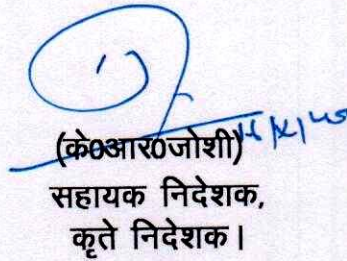 (के0आर0जोशी)
सहायक निदेशक,
कृते निदेशक।